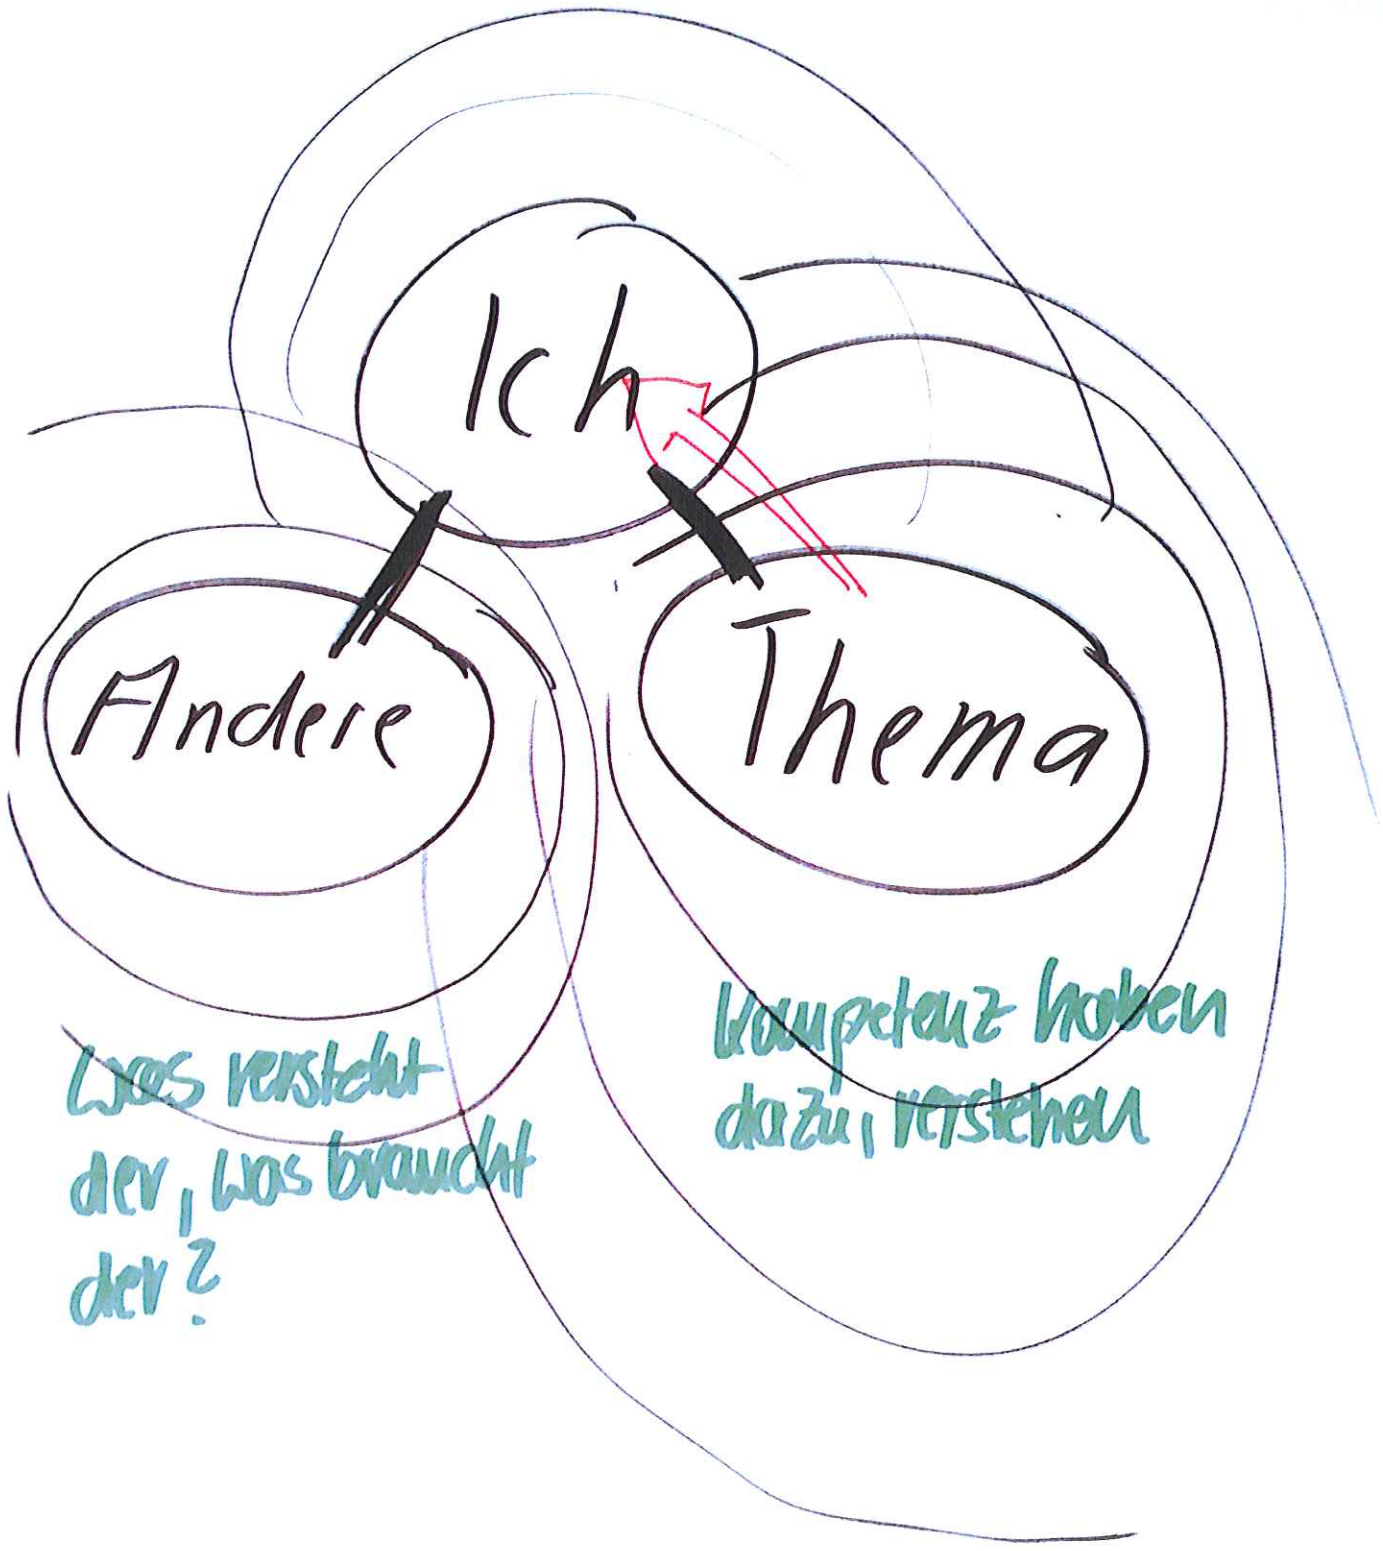 Ich
Andere
Thema
was versteht
der, was braucht
der?
Kompetenz haben
dazu, verstehen